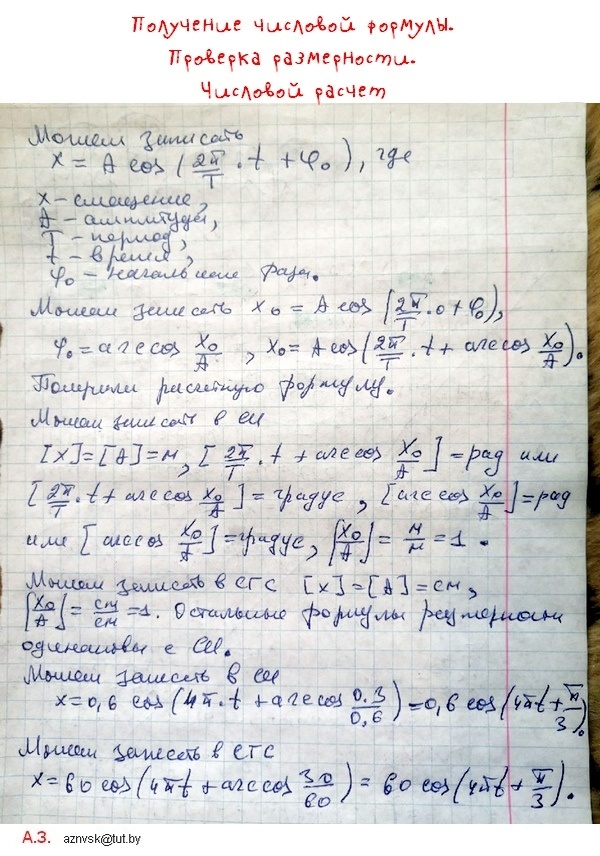 Получение числовой формулы.
Проверка размерности.
Числовой расчет
Можем записать
x = A cos (2π/T · t + φ₀), где
x - смещение,
A - амплитуда,
T - период,
t - время,
φ₀ - начальная фаза.
Можем записать x₀ = A cos (2π/T · 0 + φ₀),
φ₀ = arccos x₀/A, x₀ = A cos (2π/T · t + arccos x₀/A).
Получили расчетную формулу.
Можем записать в СИ
[x] = [A] = м, [2π/T · t + arccos x₀/A] = рад или
[2π/T · t + arccos x₀/A] = градус, [arccos x₀/A] = рад
или [arccos x₀/A] = градус, [x₀/A] = м/м = 1.
Можем записать в СГС [x] = [A] = см,
[x₀/A] = см/см = 1. Остальные формулы размерности
одинаковы с СИ.
Можем записать в СИ
x = 0,6 cos (4π · t + arccos 0,3/0,6) = 0,6 cos (4πt + π/3).
Можем записать в СГС
x = 60 cos (4πt + arccos 30/60) = 60 cos (4πt + π/3).
А.З. aznvsk@tut.by